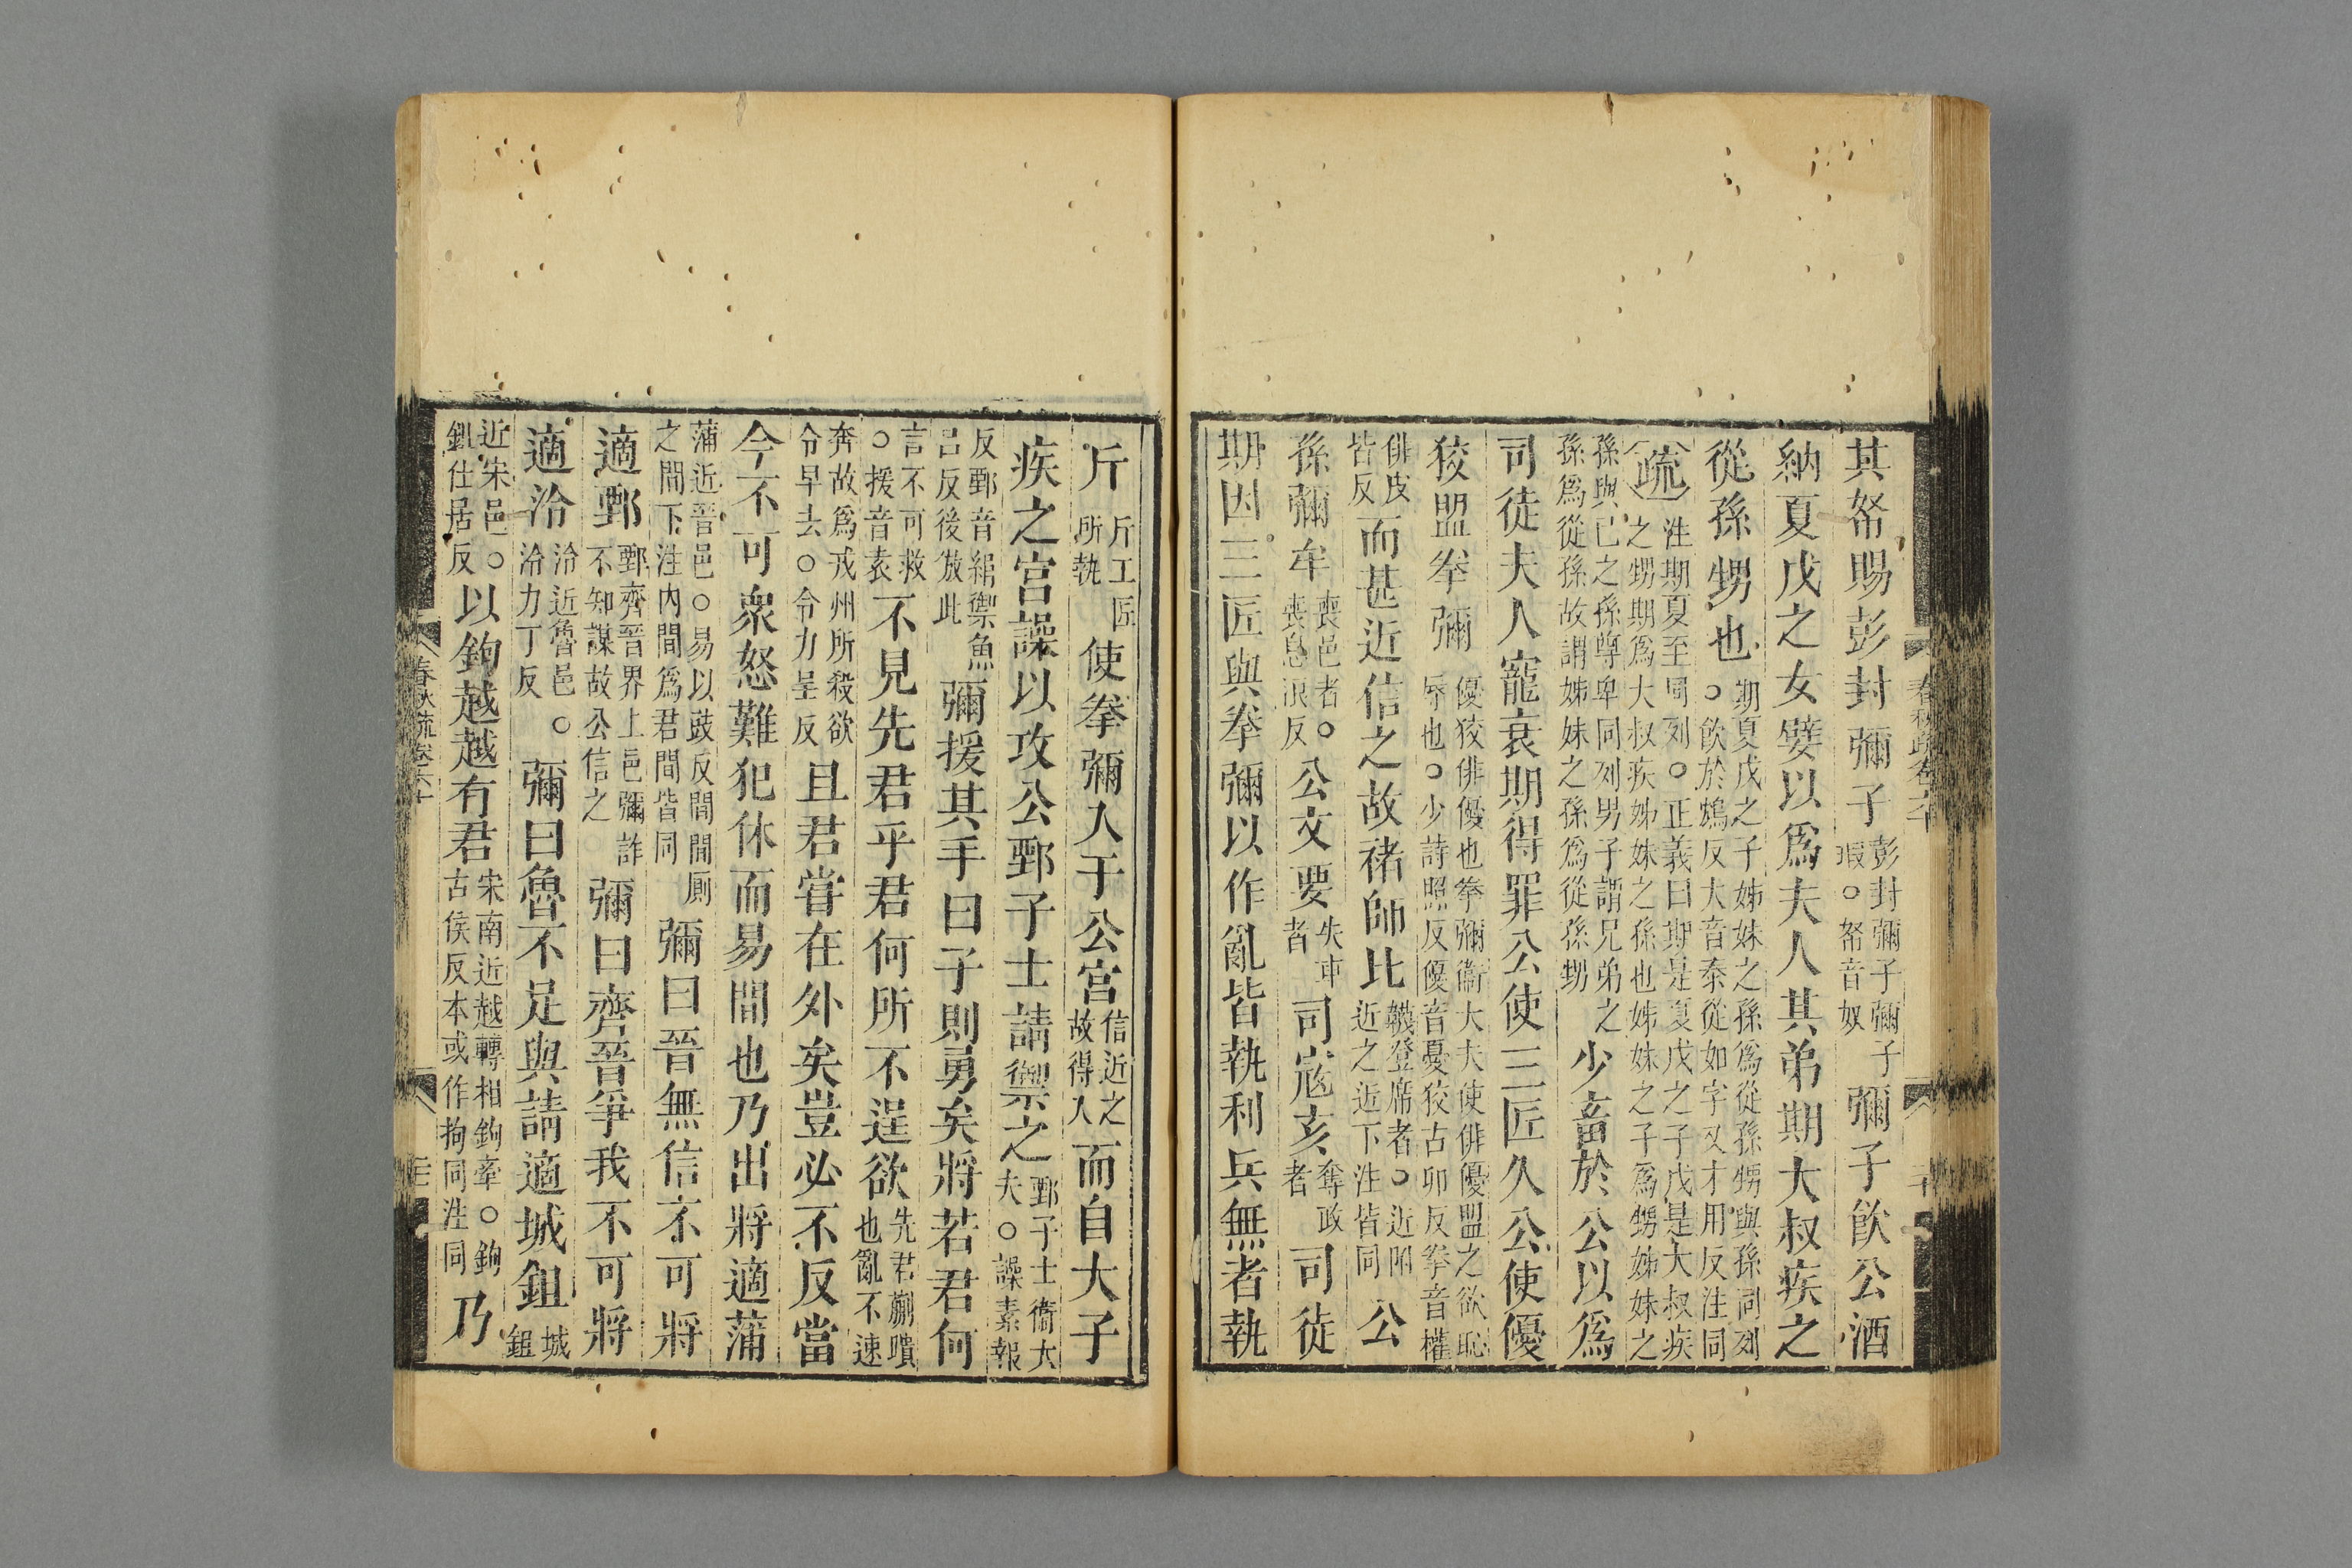 其帑賜彭封彌子彭封彌子彌子瑕○帑音奴彌子飲公酒
納夏戊之女嬖以爲夫人其弟期大叔疾之
從孫甥也期夏戊之子姊妹之孫爲從孫甥與孫同列○飲於鴆反大音泰從如字又才用反注同
疏注期夏至同列○正義曰期是夏戊之子戊是大叔疾之甥期爲大叔疾姊妹之孫也姊妹之子爲甥姊妹之
孫與已之孫尊卑同列男子謂兄弟之孫爲從孫故謂姊妹之孫爲從孫甥少畜於公以爲
司徒夫人寵衰期得罪公使三匠久公使優
狡盟拳彌優狡俳優也拳彌衞大夫使俳優盟之欲恥辱也○少詩照反優音憂狡古卯反拳音權
俳皮皆反而甚近信之故褚師比韤登席者○近附近之近下注皆同公
孫彌牟喪邑者○喪息浪反公文要失車者司寇亥奪政者司徒
期因三匠與拳彌以作亂皆執利兵無者執
斤斤工匠所執使拳彌入于公宮信近之故得入而自大子
疾之宮譟以攻公鄄子士請禦之鄄子士衞大夫○譟素報
反鄄音絹禦魚呂反後倣此彌援其手曰子則勇矣將若君何
言不可救○援音袁不見先君乎君何所不逞欲先君蒯聵也亂不速
奔故爲戎州所殺欲令早去○令力呈反且君嘗在外矣豈必不反當
今不可衆怒難犯休而易間也乃出將適蒲
蒲近晉邑○易以豉反間間厠之間下注内間爲君間皆同彌曰晉無信不可將
適鄄鄄齊晉界上邑彌詐不知謀故公信之彌曰齊晉爭我不可將
適泠泠近魯邑○泠力丁反彌曰魯不足與請適城鉏城鉏
近宋邑○鉏仕居反以鉤越越有君宋南近越轉相鉤牽○鉤古侯反本或作拘同注同乃
春秋疏卷六十